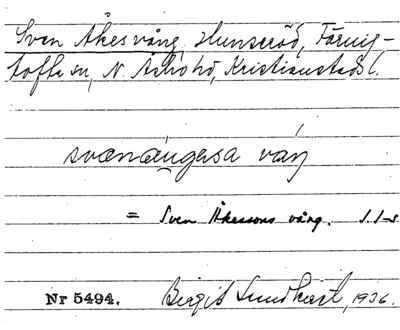 Sven Åkesvång, Hunseröd, Färnig-
tofta sn, N. Åsbo hd, Kristianstads l.
svænáŋ̀esa váŋ
= Sven Åkessons vång. I. I-s
Nr 5494. Birgit Lundkvist, 1936.